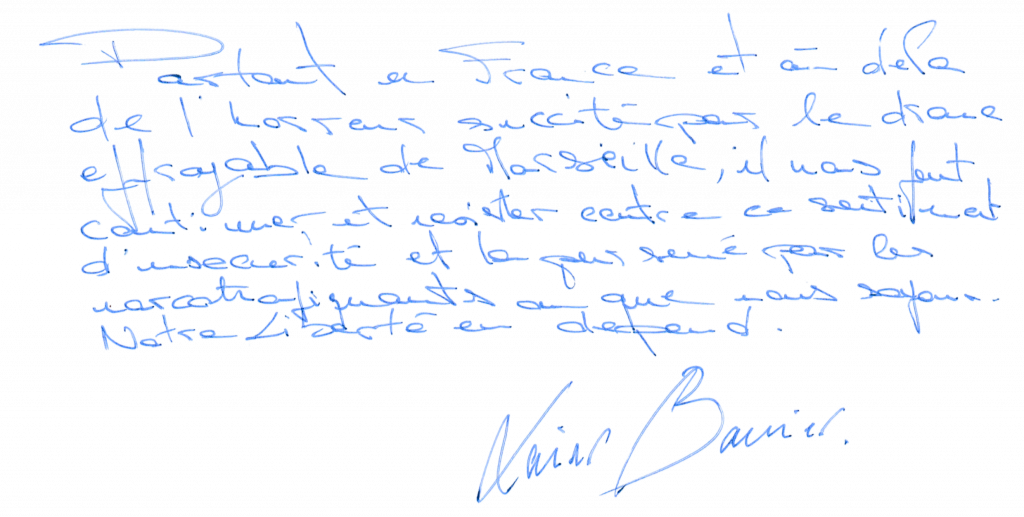 Partout en France et au délà
de l'horreur suscité par le drame
effroyable de Marseille, il nous faut
continuer et résister contre ce sentiment
d'insécurité et la peur semé par les
narcotrafiquants où que nous soyons.
Notre Liberté en dépend.
Xavier Bannier.